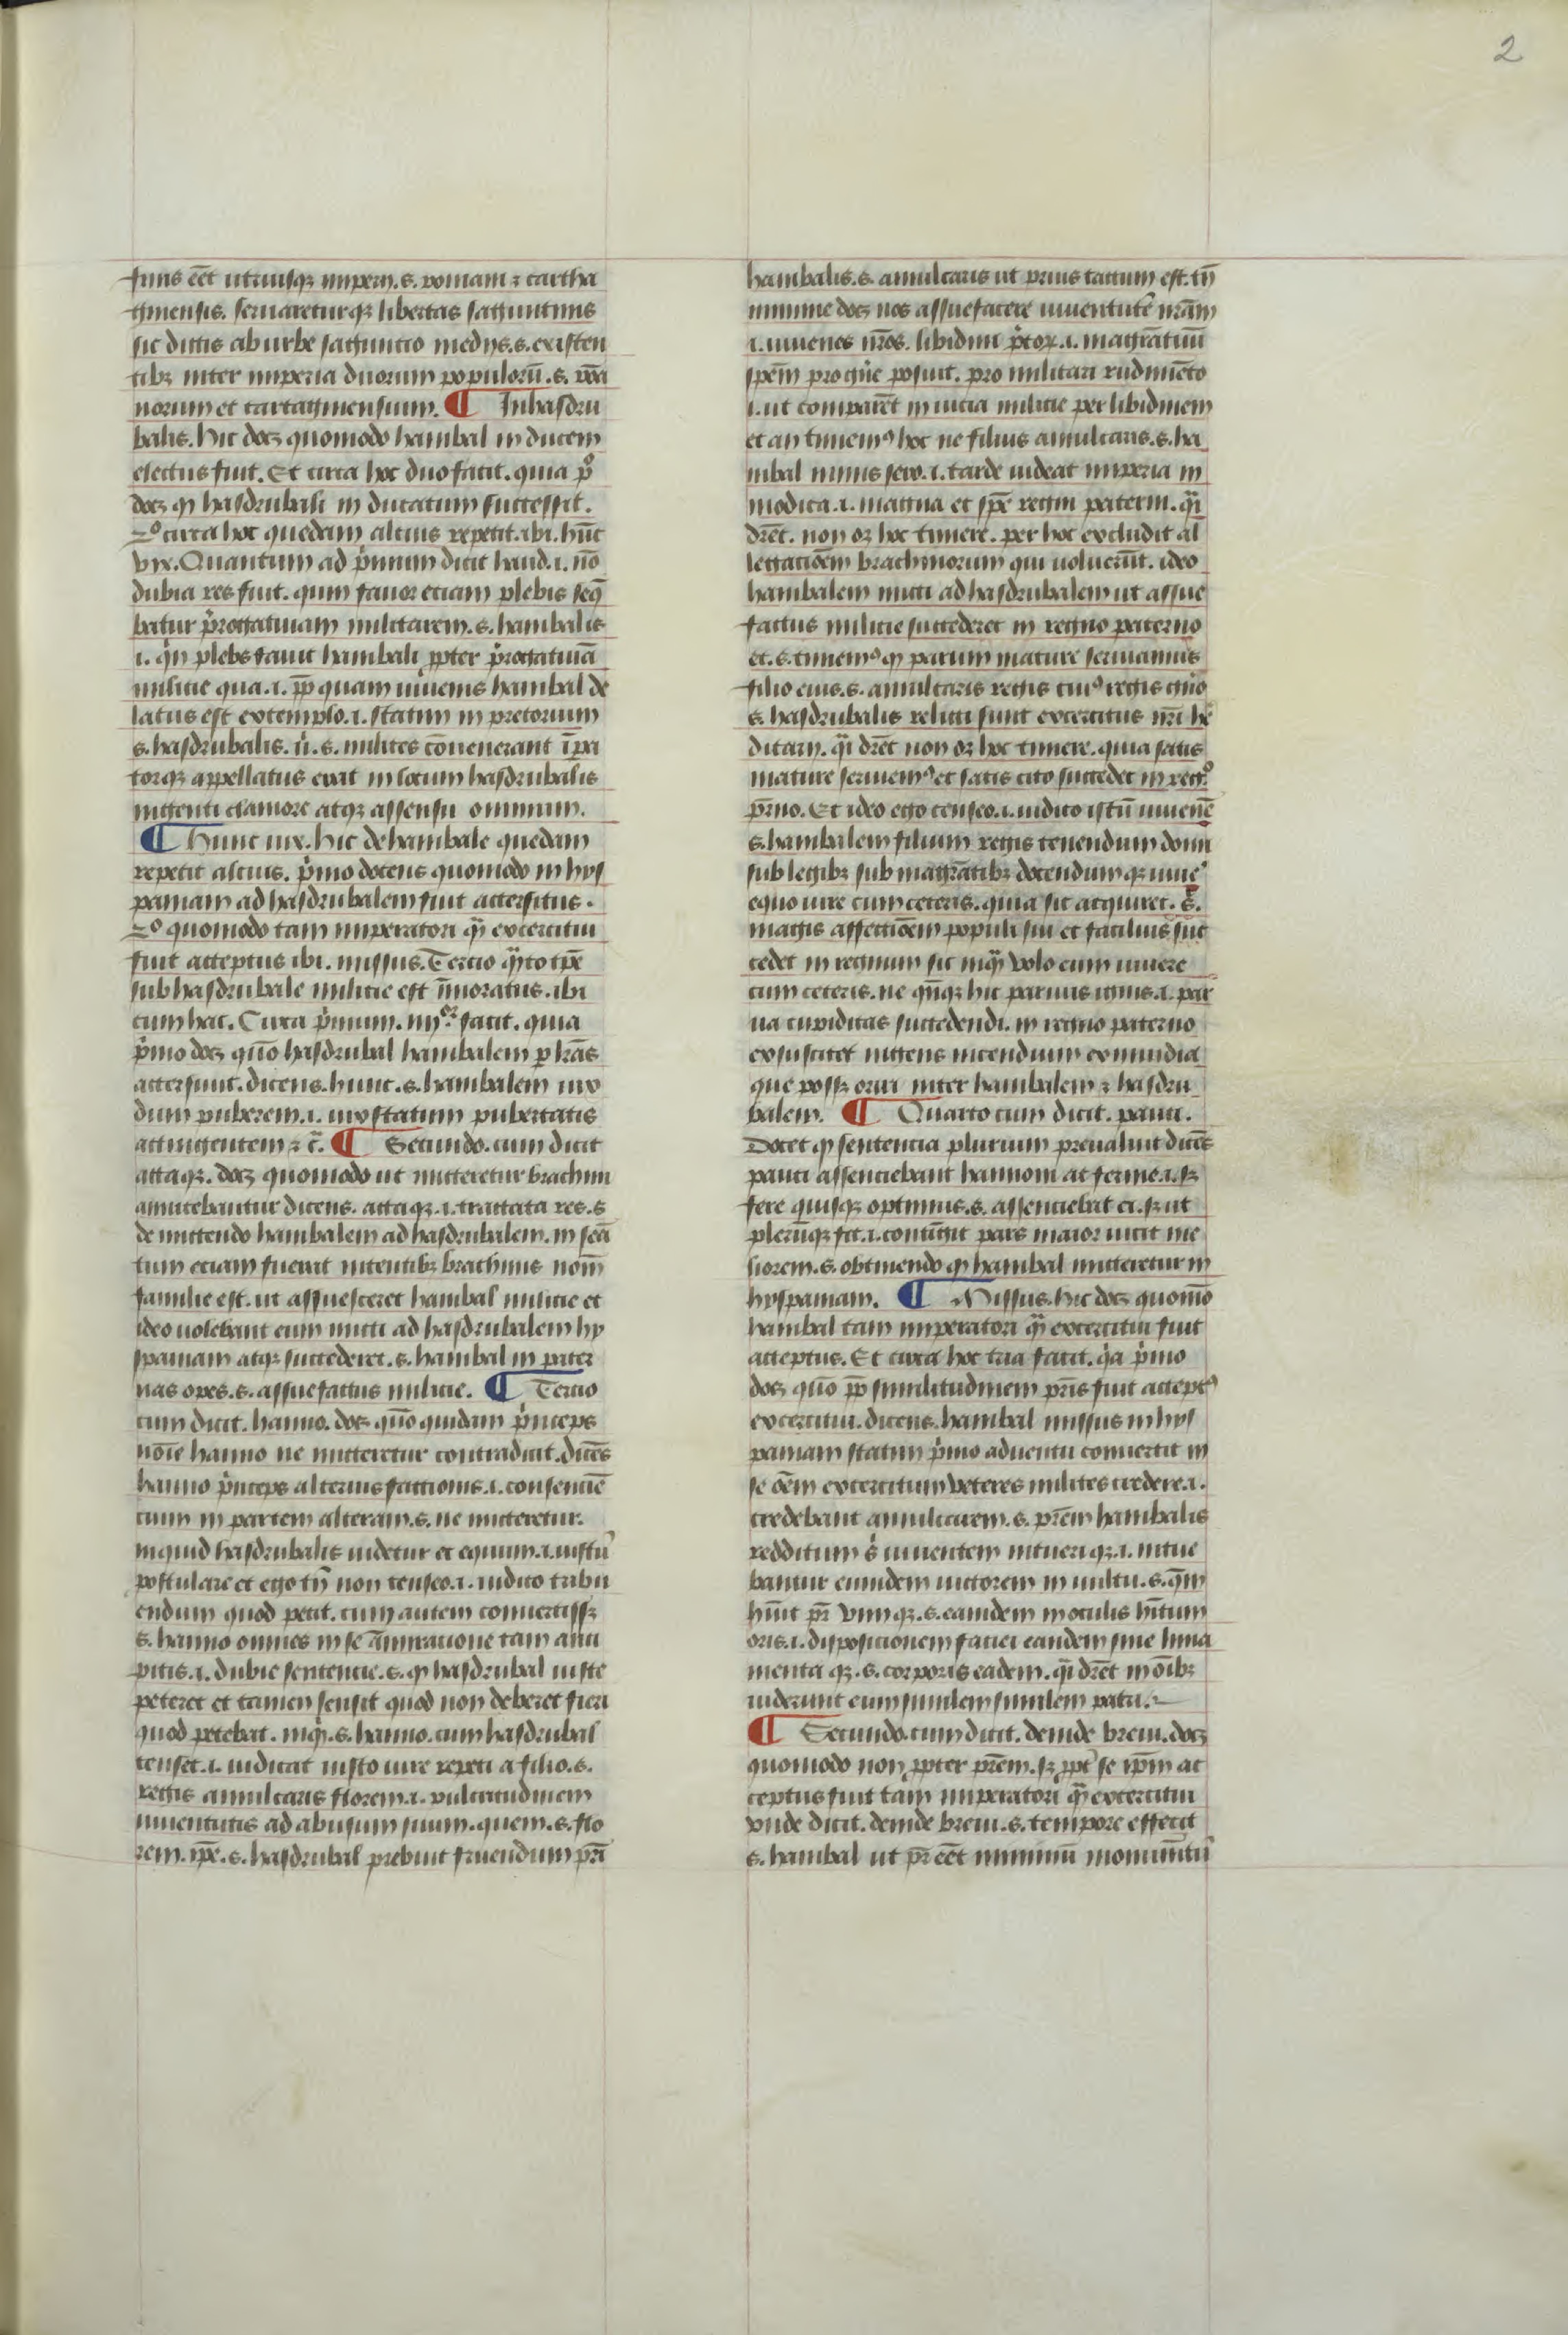 2
finis eēt utriusqȝ imperij .s. romani ⁊ cartha
ginensis. seruareturqȝ libertas saguntinis
sic dictis ab urbe sagunto medijs .s. existen
tibȝ inter imperia duorum populorū .s. roā
norum et cartaginensium. ¶ In hasdru
balis. Hic docȝ quomodo hanibal in ducem
electus fuit. Et circa hoc duo facit. quia p̊
docȝ qȝ hasdrubali in ducatum successit.
2º circa hoc quedam altius repetit. ibi. hūc
vix. Quantum ad primum dicit haud .i. nō
dubia res fuit. quin fauor etiam plebis seq̄
batur p̓rogatiuam militarem .s. hanibalis
.i. quin plebs fauit hanibali ꝓpter p̓rogatiuā
militie qua .i. ꝓp quam iuuenis hanibal de
latus est extemplo .i. statim in pretorium
.s. hasdrubalis. ubi .s. milites cōuenerant īpa
torqȝ appellatus erat in locum hasdrubalis
ingenti clamore atqȝ assensu omnium.
¶ Hunc vix. hic de hanibale quedam
repetit altius. p̓mo docens quomodo in hys
paniam ad hasdrubalem fuit accersitus.
2º quomodo tam imperatori qȝ exercitui
fuit acceptus ibi. missus. Tercio quāto tp̄e
sub hasdrubale militie est īmoratus. ibi
cum hac. Circa p̓mum. iiijor facit. quia
p̓mo docȝ quō hasdrubal hanibalem p lr̄as
accersiuit. dicens. hunc .s. hanibalem vix
dum puberem .i. vix statum pubertatis
attingentem ⁊ c̄. ¶ Secundo. cum dicit
actaqȝ. docȝ quomodo ut mitteretur brachini
annitebantur dicens. actaqȝ .i. tractata res .s.
de mittendo hanibalem ad hasdrubalem. in senā
tum etiam fuerat nitentibȝ brachinis nomē
familie est. ut assuesceret hanibal militie et
ideo uolebant eum mitti ad hasdrubalem hy
spaniam atqȝ succederet .s. hanibal in pater
nas opes .s. assuefactus militie. ¶ Tercio
cum dicit. hanno. docȝ quō quidam p̓nceps
noīe hanno ne mitteretur contradicit. dicēs
hanno p̓nceps alterius factionis .i. consenciē
cium in partem alteram .s. ne mitteretur.
inquid hasdrubalis uidetur et equum .i. iustū
postulare et ego tn̄ non censeo .i. iudico tribu
endum quod petit. cum autem conuertissȝ
.s. hanno omnes in se āmiratione tam anci
pitis .i. dubie sentencie .s. qȝ hasdrubal iuste
peteret et tamen sensit quod non deberet fieri
quod petebat. inqȝ .s. hanno. cum hasdrubal
censet .i. iudicat iusto iure repeti a filio .s.
regis amilcaris florem .i. pulcritudinem
iuuentutis ad abusum suum. quem .s. flo
rem. ip̄e .s. hasdrubal prebuit fruendum pr̄i
hanibalis .s. amilcaris ut prius tactum est. tn̄
minime docȝ nos assuefacere iuuentutē nr̄am
.i. iuuenes nr̄os. libidini p̓torȝ .i. magr̄atuū
spēm pro gn̄e posuit. pro militari rudimēto
.i. ut comparēt in iuicia militie per libidinem
et an timem⁹ hoc ne filius amilcaris .s. ha
nibal nimis sero .i. tarde uideat imperia in
modica .i. magna et spē regni paterni. qȝ
dr̄et. non oȝ hoc timere. per hoc excludit al
legacōem brachinorum qui uoluerūt. ideo
hanibalem mitti ad hasdrubalem ut assue
factus militie succederet in regno paterno
et .s. timem⁹ qȝ parum mature seruiamus
filio eius .s. amilcaris regis cui⁹ regis gn̄o
.s. hasdrubalis relicti sunt exercitus nr̄i he
ditarij. qȝ dr̄et non oȝ hoc timere. quia satis
mature seruiem⁹ et satis cito succedet in reg̊
pr̄no. Et ideo ego censeo .i. iudico istū iuuenē
.s. hanibalem filium regis tenendum domi
sub legibȝ sub magr̄atibȝ docendumqȝ viuē
equo iure cum ceteris. quia sic acquiret .s.
magis affectiōem populi sui et facilius suc
cedet in regnum sic inqȝ volo eum uiuere
cum ceteris. ne qn̄qȝ hic paruus ignis .i. par
ua cupiditas succedendi. in regno paterno
exsuscitet mittens incendium ex inuidia
que possȝ oriri inter hanibalem ⁊ hasdru
balem. ¶ Quarto cum dicit. pauci.
Docet qȝ sentencia plurium preualuit dicēs
pauci assenciebant hannoni ac ferme .i. sȝ
fere quisqȝ optimus .s. assenciebat ei. sȝ ut
plerūqȝ fit .i. contingit pars maior uicit me
liorem .s. obtinendo qȝ hanibal mitteretur in
hyspaniam. ¶ Missus. hic docȝ quomō
hanibal tam imperatori qȝ exercitui fuit
acceptus. Et circa hoc tria facit. q̓a p̓mo
docȝ quō ꝓp similitudinem pr̄is fuit accept⁹
exercitui. dicens. hanibal missus in hys
paniam statim p̓mo aduentu conuertit in
se oēm exercitum veteres milites credere .i.
credebant amilicarem .s. pr̄em hanibalis
redditum .s. iuuenem intueriqȝ .i. intue
bantur eundem uictorem in uultu .s. qm̄
hūit pr̄ vimqȝ .s. eandem in oculis hītum
oris .i. disposicionem faciei eandem siue linia
mentaqȝ .s. corporis eadem. qȝ dr̄et in oībȝ
uiderunt eum similem similem patri.
¶ Secundo. cum dicit. deinde breui. docȝ
quomodo non ꝓpter pr̄em. sȝ ꝓpt̄ se ip̄m ac
ceptus fuit tam imperatori qȝ exercitui
vnde dicit. deinde breui .s. tempore effecit
.s. hanibal ut pr̄ eēt minimū monumētū